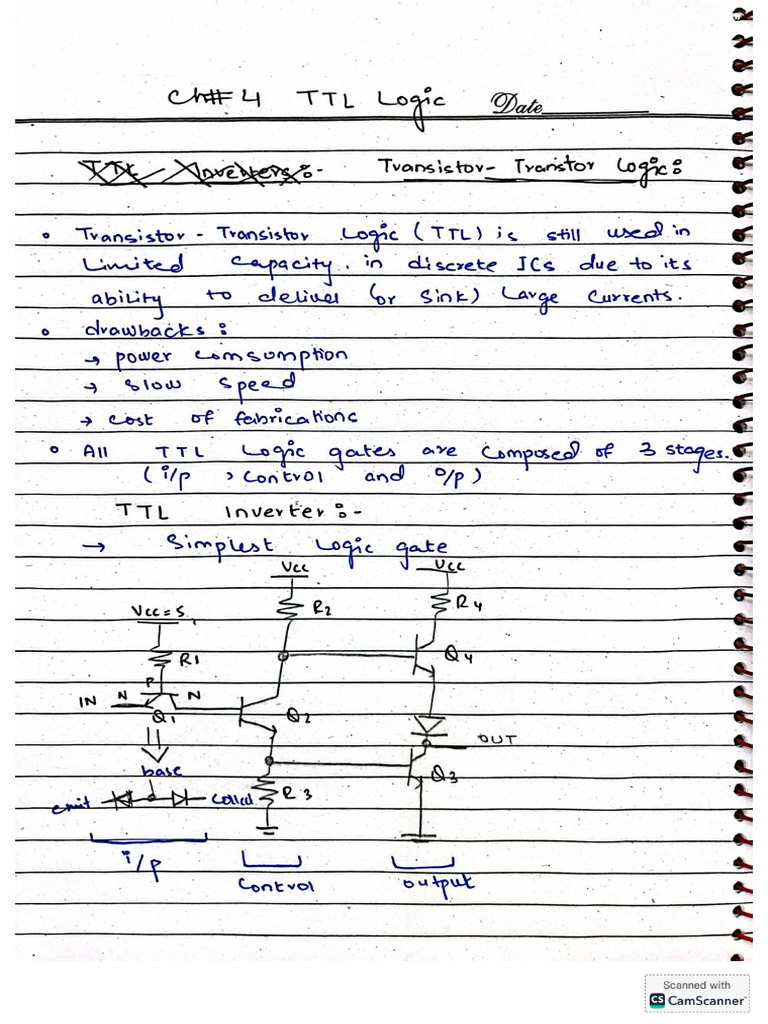 Ch# 4 TTL Logic Date
TTL Inverters:- Transistor- Tranistor Logic:
• Transistor - Transistor Logic (TTL) is still used in
Limited capacity, in discrete ICs due to its
ability to deliver (or sink) Large currents.
• drawbacks:
→ power comsumption
→ slow speed
→ cost of fabrications
• All TTL Logic gates are composed of 3 stages.
(i/p, control and o/p)
TTL Inverter:-
→ Simplest Logic gate
Vcc Vcc
Vcc=5 R2 R4
R1 Q4
P
IN N N
Q1 Q2
OUT
base Q3
emit R3
i/p
control output
Scanned with
CS CamScanner